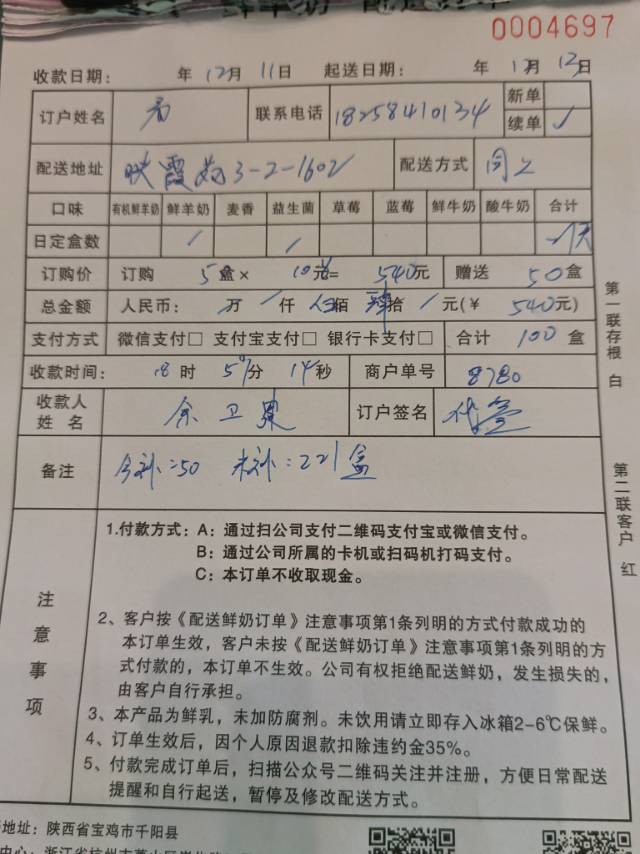 0004697
收款日期: 年 12月 11日 起送日期: 年 12月 12日
订户姓名 联系电话 18258410134 新单
续单 ✓
配送地址 映霞 3-2-1602 配送方式 同上
口味 有机鲜羊奶 鲜羊奶 麦香 益生菌 草莓 蓝莓 鲜牛奶 酸牛奶 合计
日定盒数 / / 天
订购价 订购 5 盒× 元= 540元 赠送 50盒
总金额 人民币: 万 仟 伍佰 肆拾 元(¥ 540元)
支付方式 微信支付□ 支付宝支付□ 银行卡支付□ 合计 100 盒
收款时间: 18时 分 14秒 商户单号 8780
收款人
姓 名 余卫 订户签名 代
备注 今补=50 未补:221盒
注意事项
1.付款方式: A: 通过扫公司支付二维码支付宝或微信支付。
B: 通过公司所属的卡机或扫码机打码支付。
C: 本订单不收取现金。
2、客户按《配送鲜奶订单》注意事项第1条列明的方式付款成功的
本订单生效，客户未按《配送鲜奶订单》注意事项第1条列明的方
式付款的，本订单不生效。公司有权拒绝配送鲜奶，发生损失的，
由客户自行承担。
3、本产品为鲜乳，未加防腐剂。未饮用请立即存入冰箱2-6℃保鲜。
4、订单生效后，因个人原因退款扣除违约金35%。
5、付款完成订单后，扫描公众号二维码关注并注册，方便日常配送
提醒和自行起送，暂停及修改配送方式。
地址: 陕西省宝鸡市千阳县
第一联存根 白
第二联客户 红